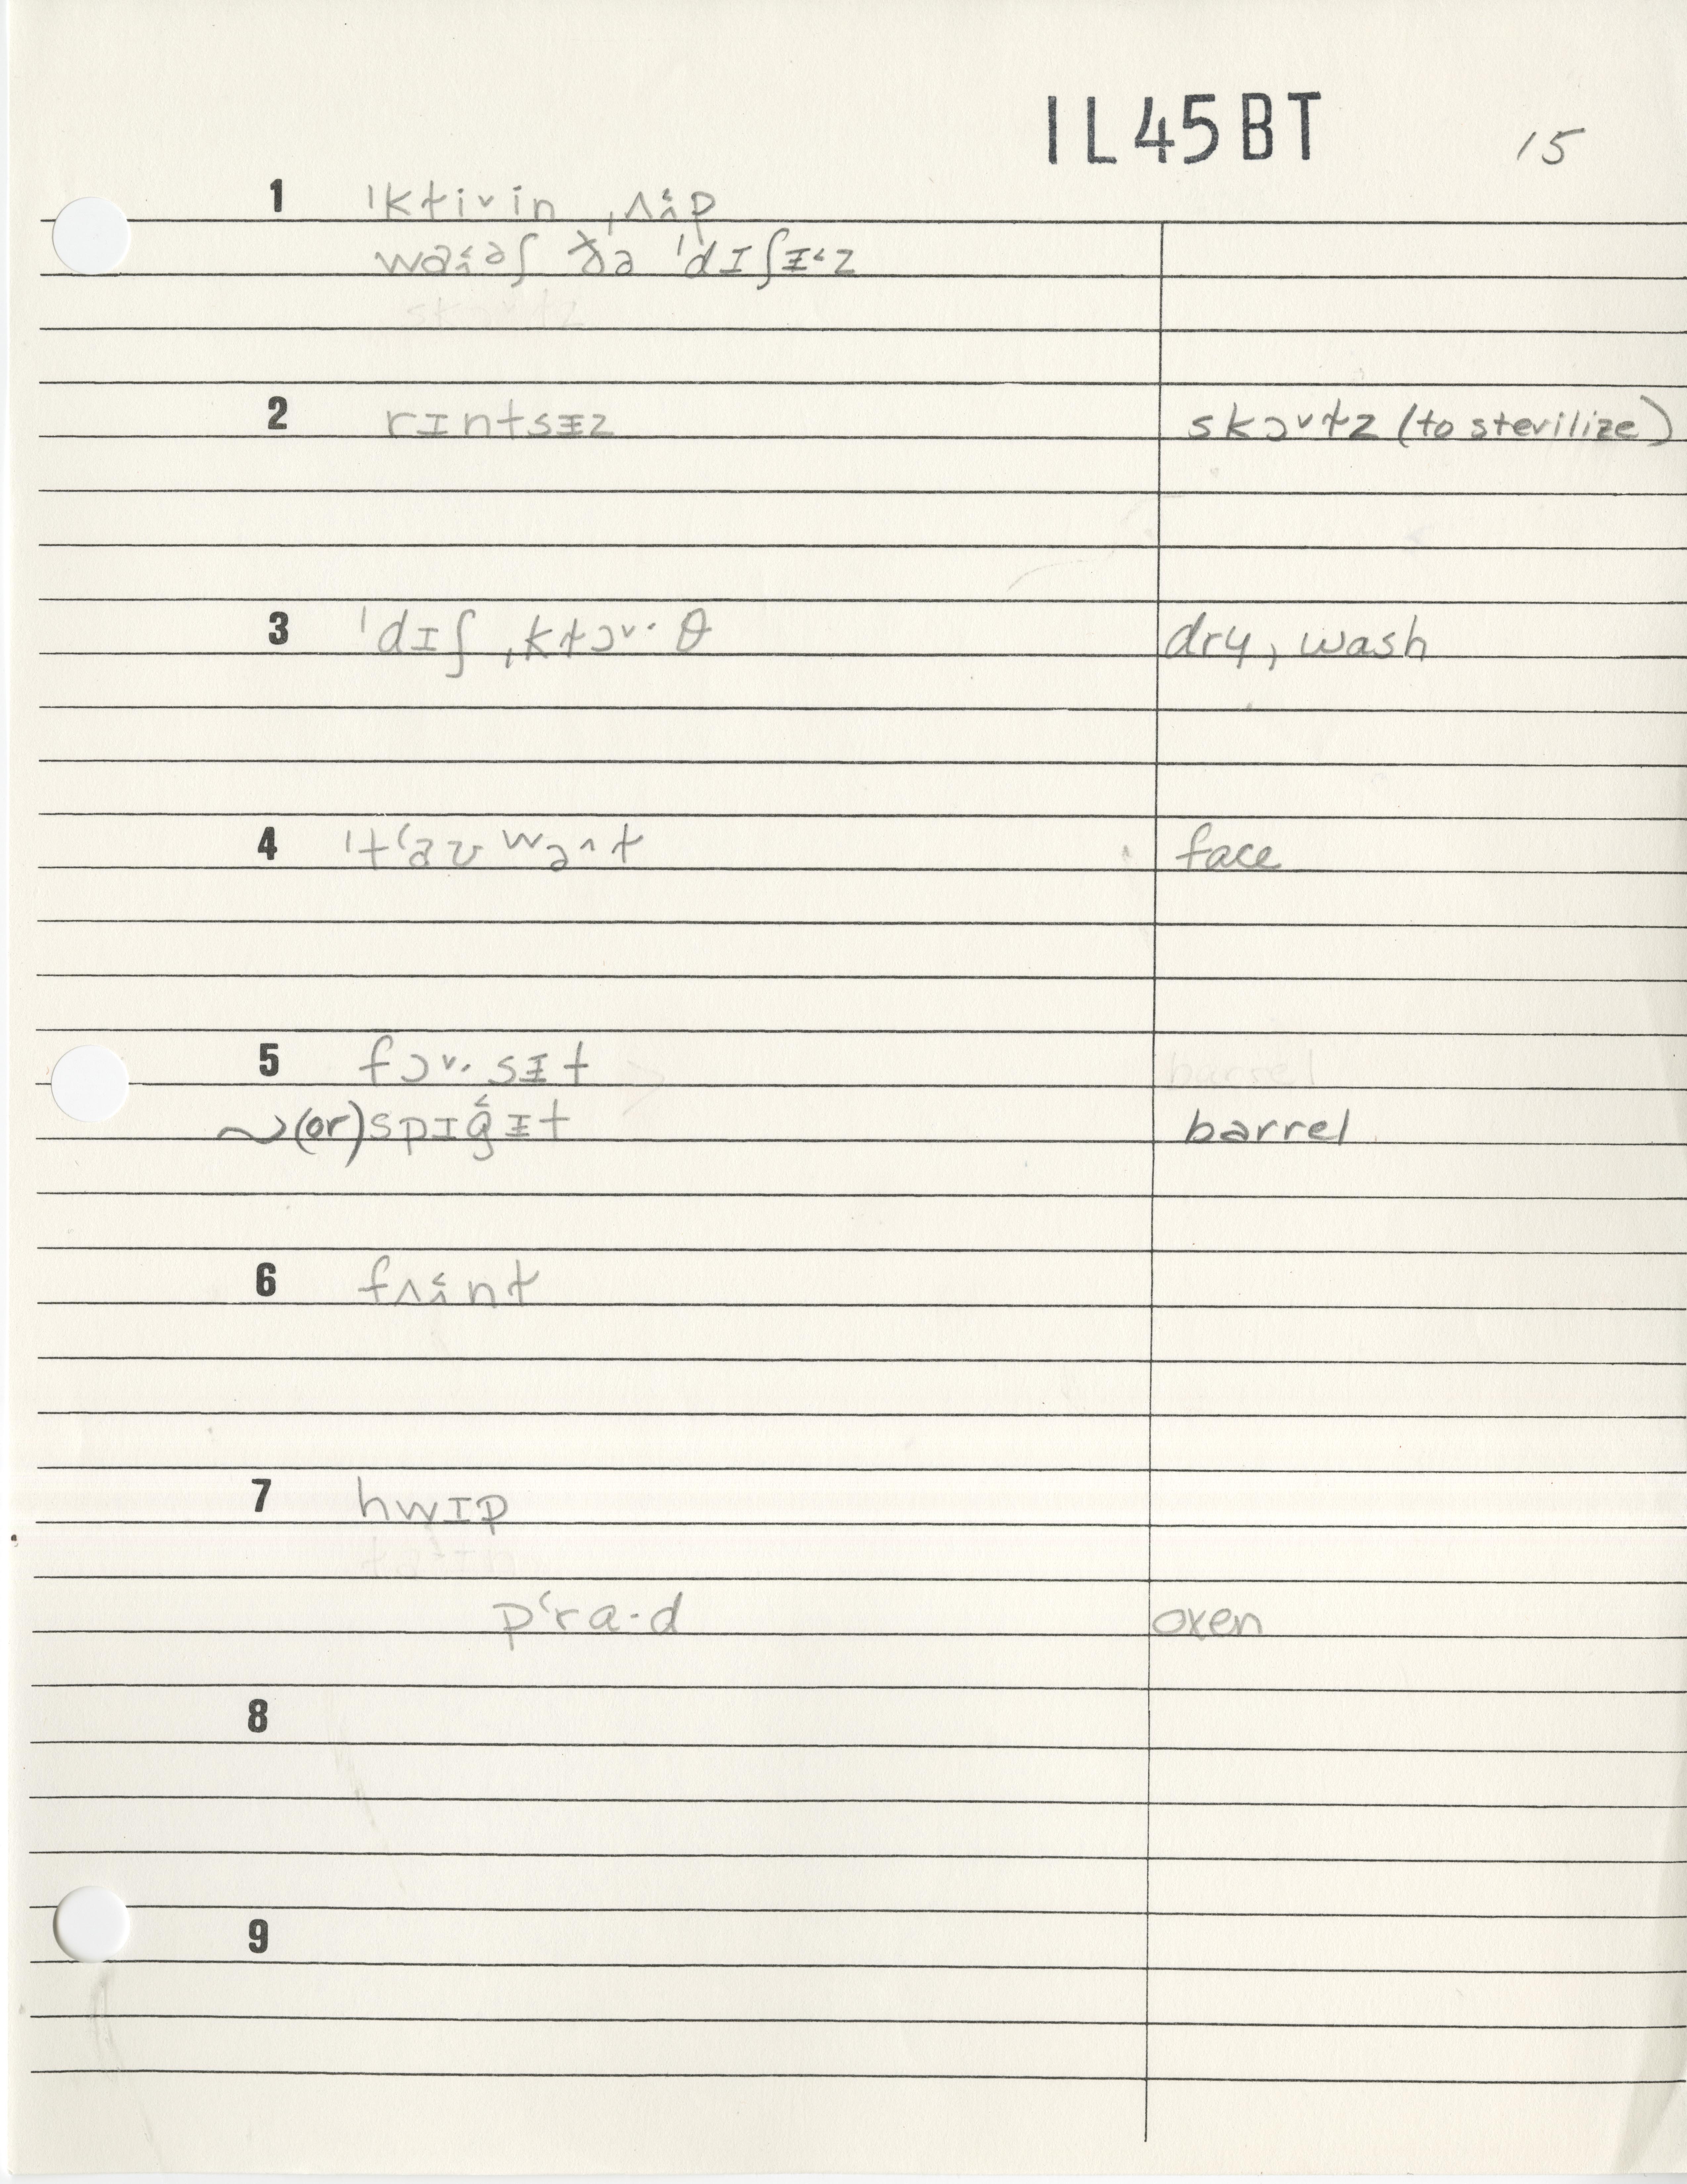 IL45BT 15
1 ˈkɫivin ˌʌi̭˂p
wɑi̭˂əʃ ðə ˈdɪʃɪ̵˂z
2 rɪntsɪ̵z skɔ˅ɫz (to sterilize)
3 ˈdɪʃ ˌkɫɔ˅·θ dry, wash
4 ˈt‘aʊʷə^ɫ face
5 fɔ˅·sɪ̵t
~(or) spɪg̭˂ɪ̵t barrel
6 fʌi̭˂nɫ
7 hwɪp
p‘rɑ·d oxen
8
9